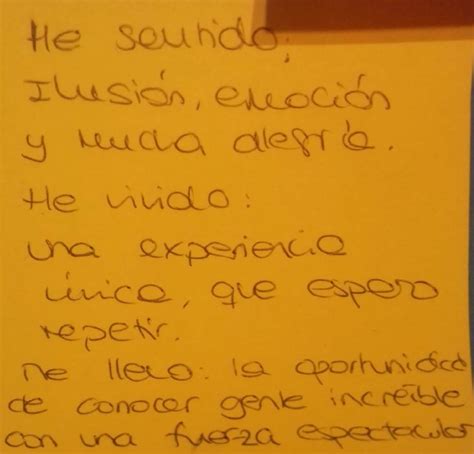 He sentido:
Ilusión, emoción
y mucha alegría.
He vivido:
una experiencia
única, que espero
repetir.
Me llevo: la oportunidad
de conocer gente increíble
con una fuerza espectacular